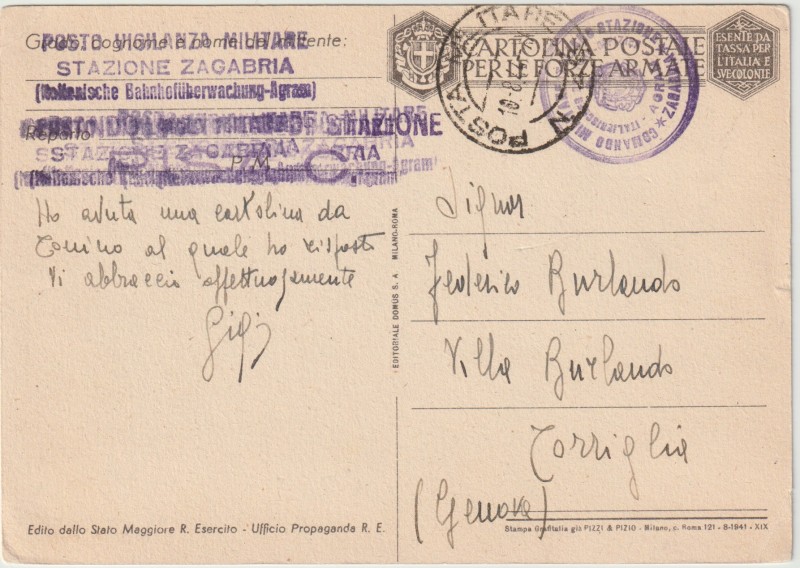 Grado, cognome e nome del mittente:
POSTO VIGILANZA MILITARE
STAZIONE ZAGABRIA
(Italienische Bahnhofüberwachung-Agram)
STAZIONE
STAZIONE ZAGABRIA
Reparto
P. M.
Ho avuta una cartolina da
Tonino al quale ho risposto
Vi abbraccio affettuosamente
Gigi
Edito dallo Stato Maggiore R. Esercito - Ufficio Propaganda R. E.
EDITORIALE DOMUS S. A. MILANO-ROMA
CARTOLINA POSTALE
PER LE FORZE ARMATE
ESENTE DA
TASSA PER
L'ITALIA E
SVE COLONIE
POSTA MILITARE N
COMANDO MILITARE STAZIONE ZAGABRIA
Signor
Federico Burlando
Villa Burlando
Torriglia
(Genova)
Stampa Grafitalia già PIZZI & PIZIO - Milano, c. Roma 121 - 8-1941 - XIX